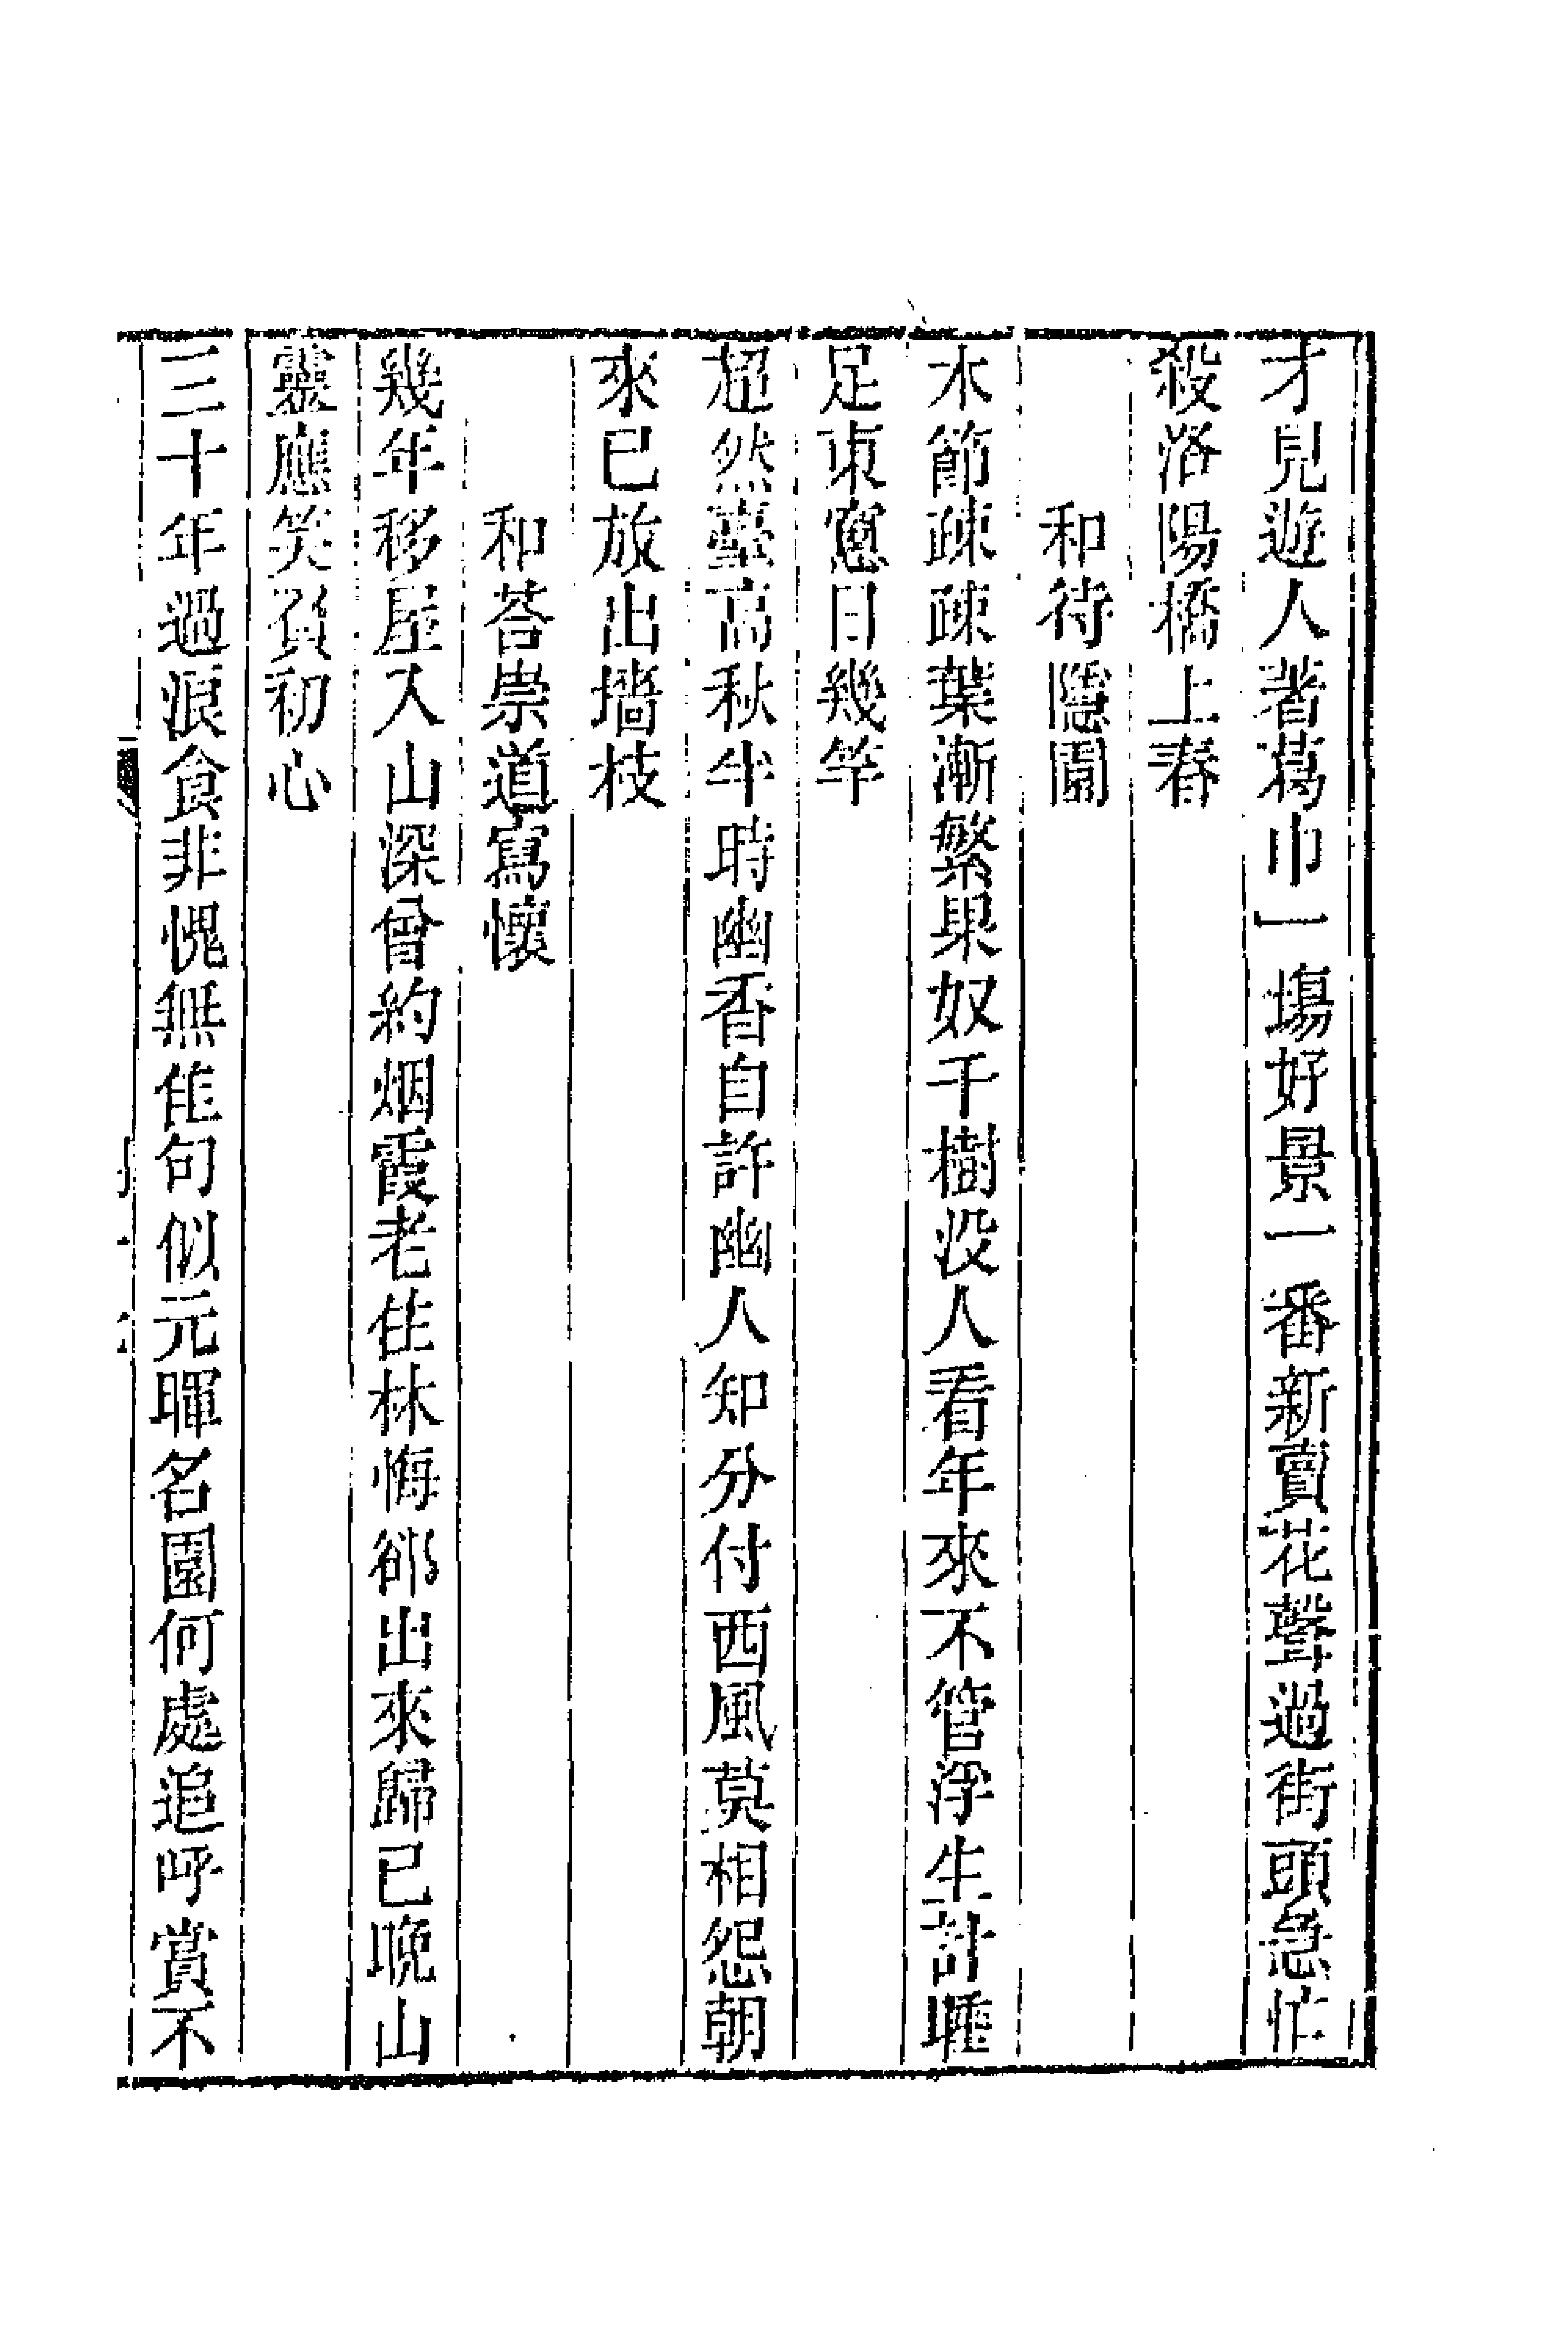 才見遊人著葛巾一場好景一番新賣花聲過街頭急忙
殺洛陽橋上春
和待隱園
木節疎疎葉漸繁果奴千樹没人看年來不管浮生計睡
足東窻日幾竿
超然臺高秋半時幽香自許幽人知分付西風莫相怨朝
來已放出墻枝
和荅崇道寫懷
幾年移屋入山深曾約烟霞老佳林悔郤出來歸已晚山
靈應笑負初心
三十年過浪食非愧無佳句似元暉名園何處追呼賞不